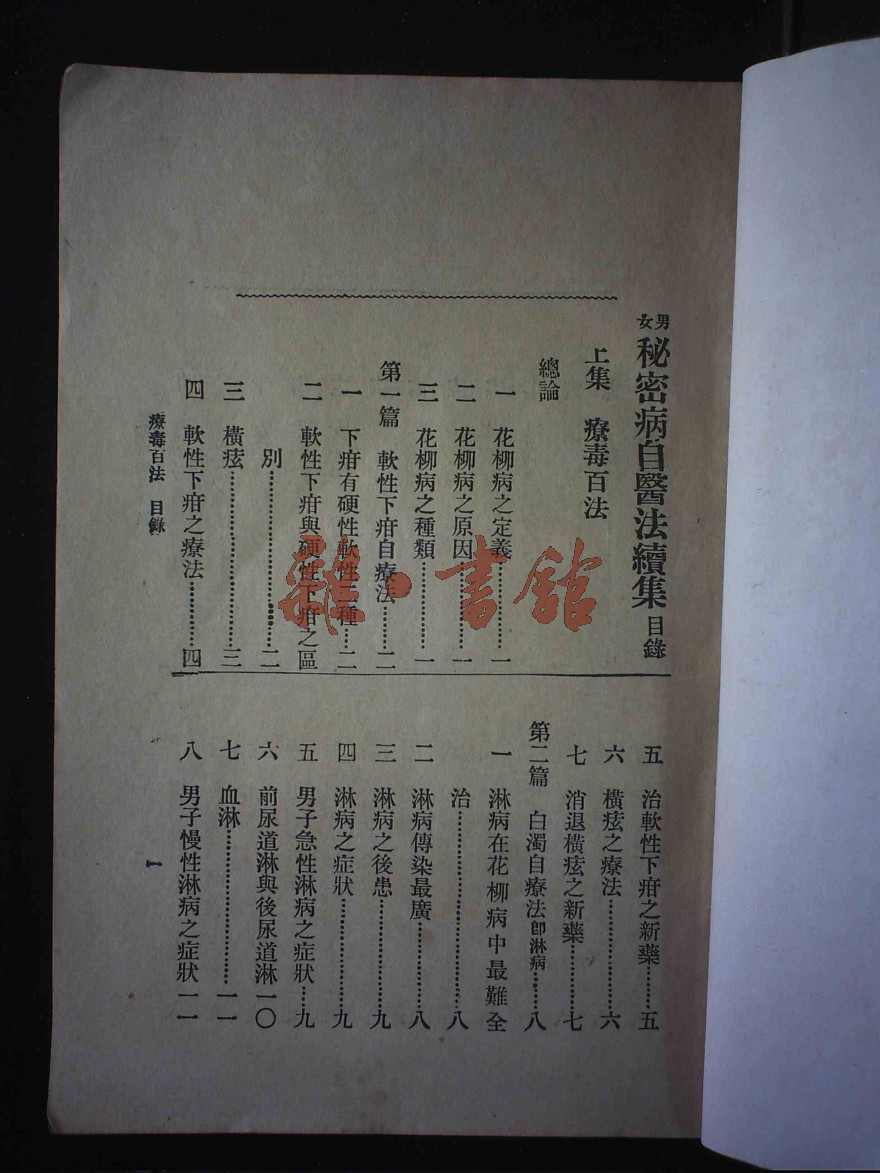 男女秘密病自醫法續集目錄
上集 療毒百法
總論
一 花柳病之定義……一
二 花柳病之原因……一
三 花柳病之種類……一
第一篇 軟性下疳自療法……二
一 下疳有硬性軟性二種……二
二 軟性下疳與硬性下疳之區
別……二
三 橫痃……三
四 軟性下疳之療法……四
五 治軟性下疳之新藥……五
六 橫痃之療法……六
七 消退橫痃之新藥……七
第二篇 白濁自療法即淋病……八
一 淋病在花柳病中最難全
治……八
二 淋病傳染最廣……八
三 淋病之後患……九
四 淋病之症狀……九
五 男子急性淋病之症狀……九
六 前尿道淋與後尿道淋一〇
七 血淋……一一
八 男子慢性淋病之症狀一一
療毒百法 目錄
一
雜·書館